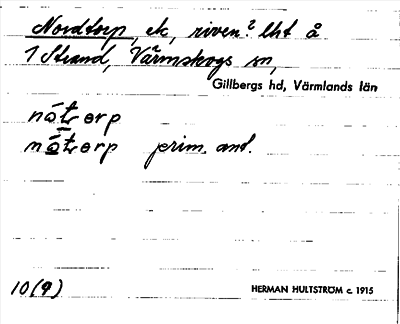 Nordtorp, ek, riven? lht å
1 Strand, Värmskogs sn,
Gillbergs hd, Värmlands län
nátorp
nátorp prim. ant.
10(9)
HERMAN HULTSTRÖM c. 1915